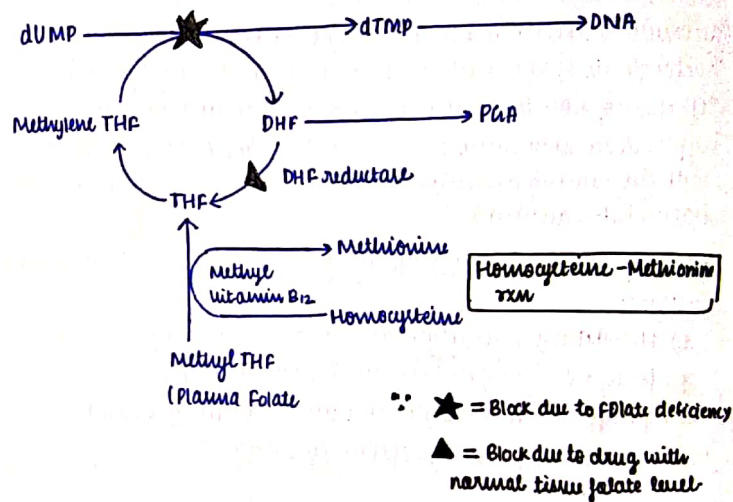 dUMP dTMP DNA
Methylene THF DHF PGA
DHF reductase
THF
Methionine
Methyl
vitamin B12
Homocysteine
Homocysteine-Methionine
rxn
Methyl THF
(Plasma Folate
∵ ★ = Block due to Folate deficiency
▲ = Block due to drug with
normal tissue folate level